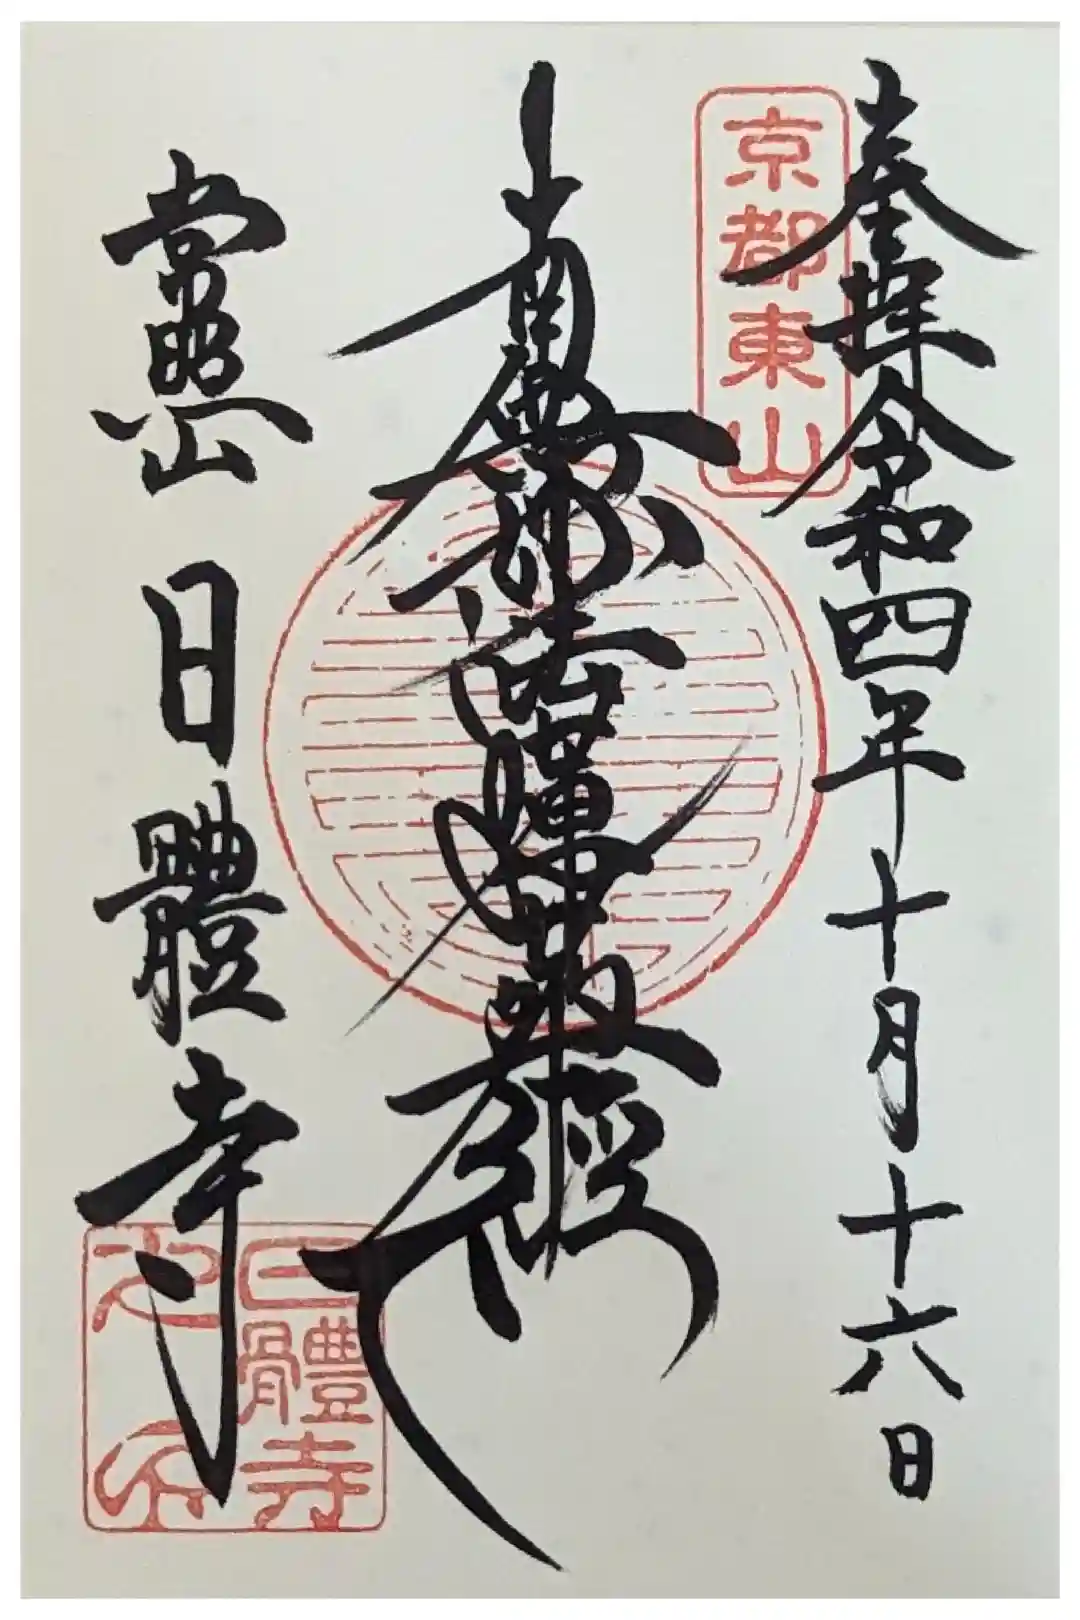 奉拝 令和四年十月十六日
京都東山
南無妙法蓮華經
常照山 日體寺
日體寺
之印